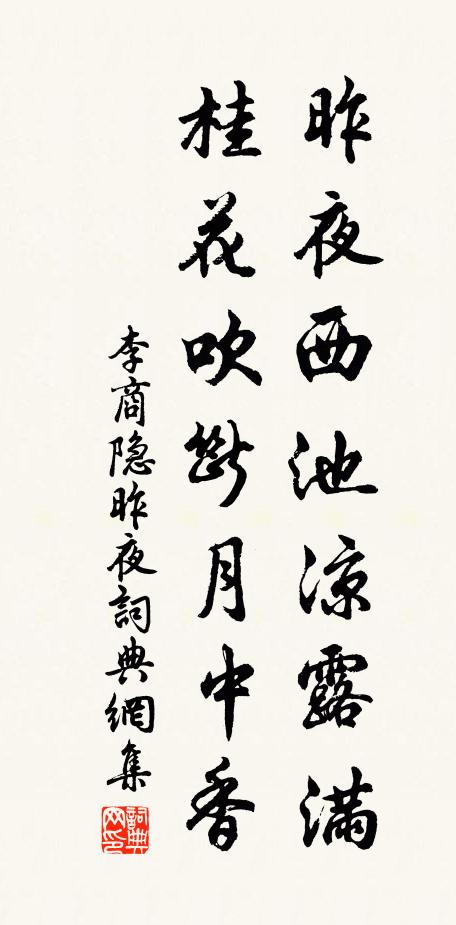 昨夜西池凉露滿
桂花吹斷月中香
李商隐昨夜詞典網集
詞典网印